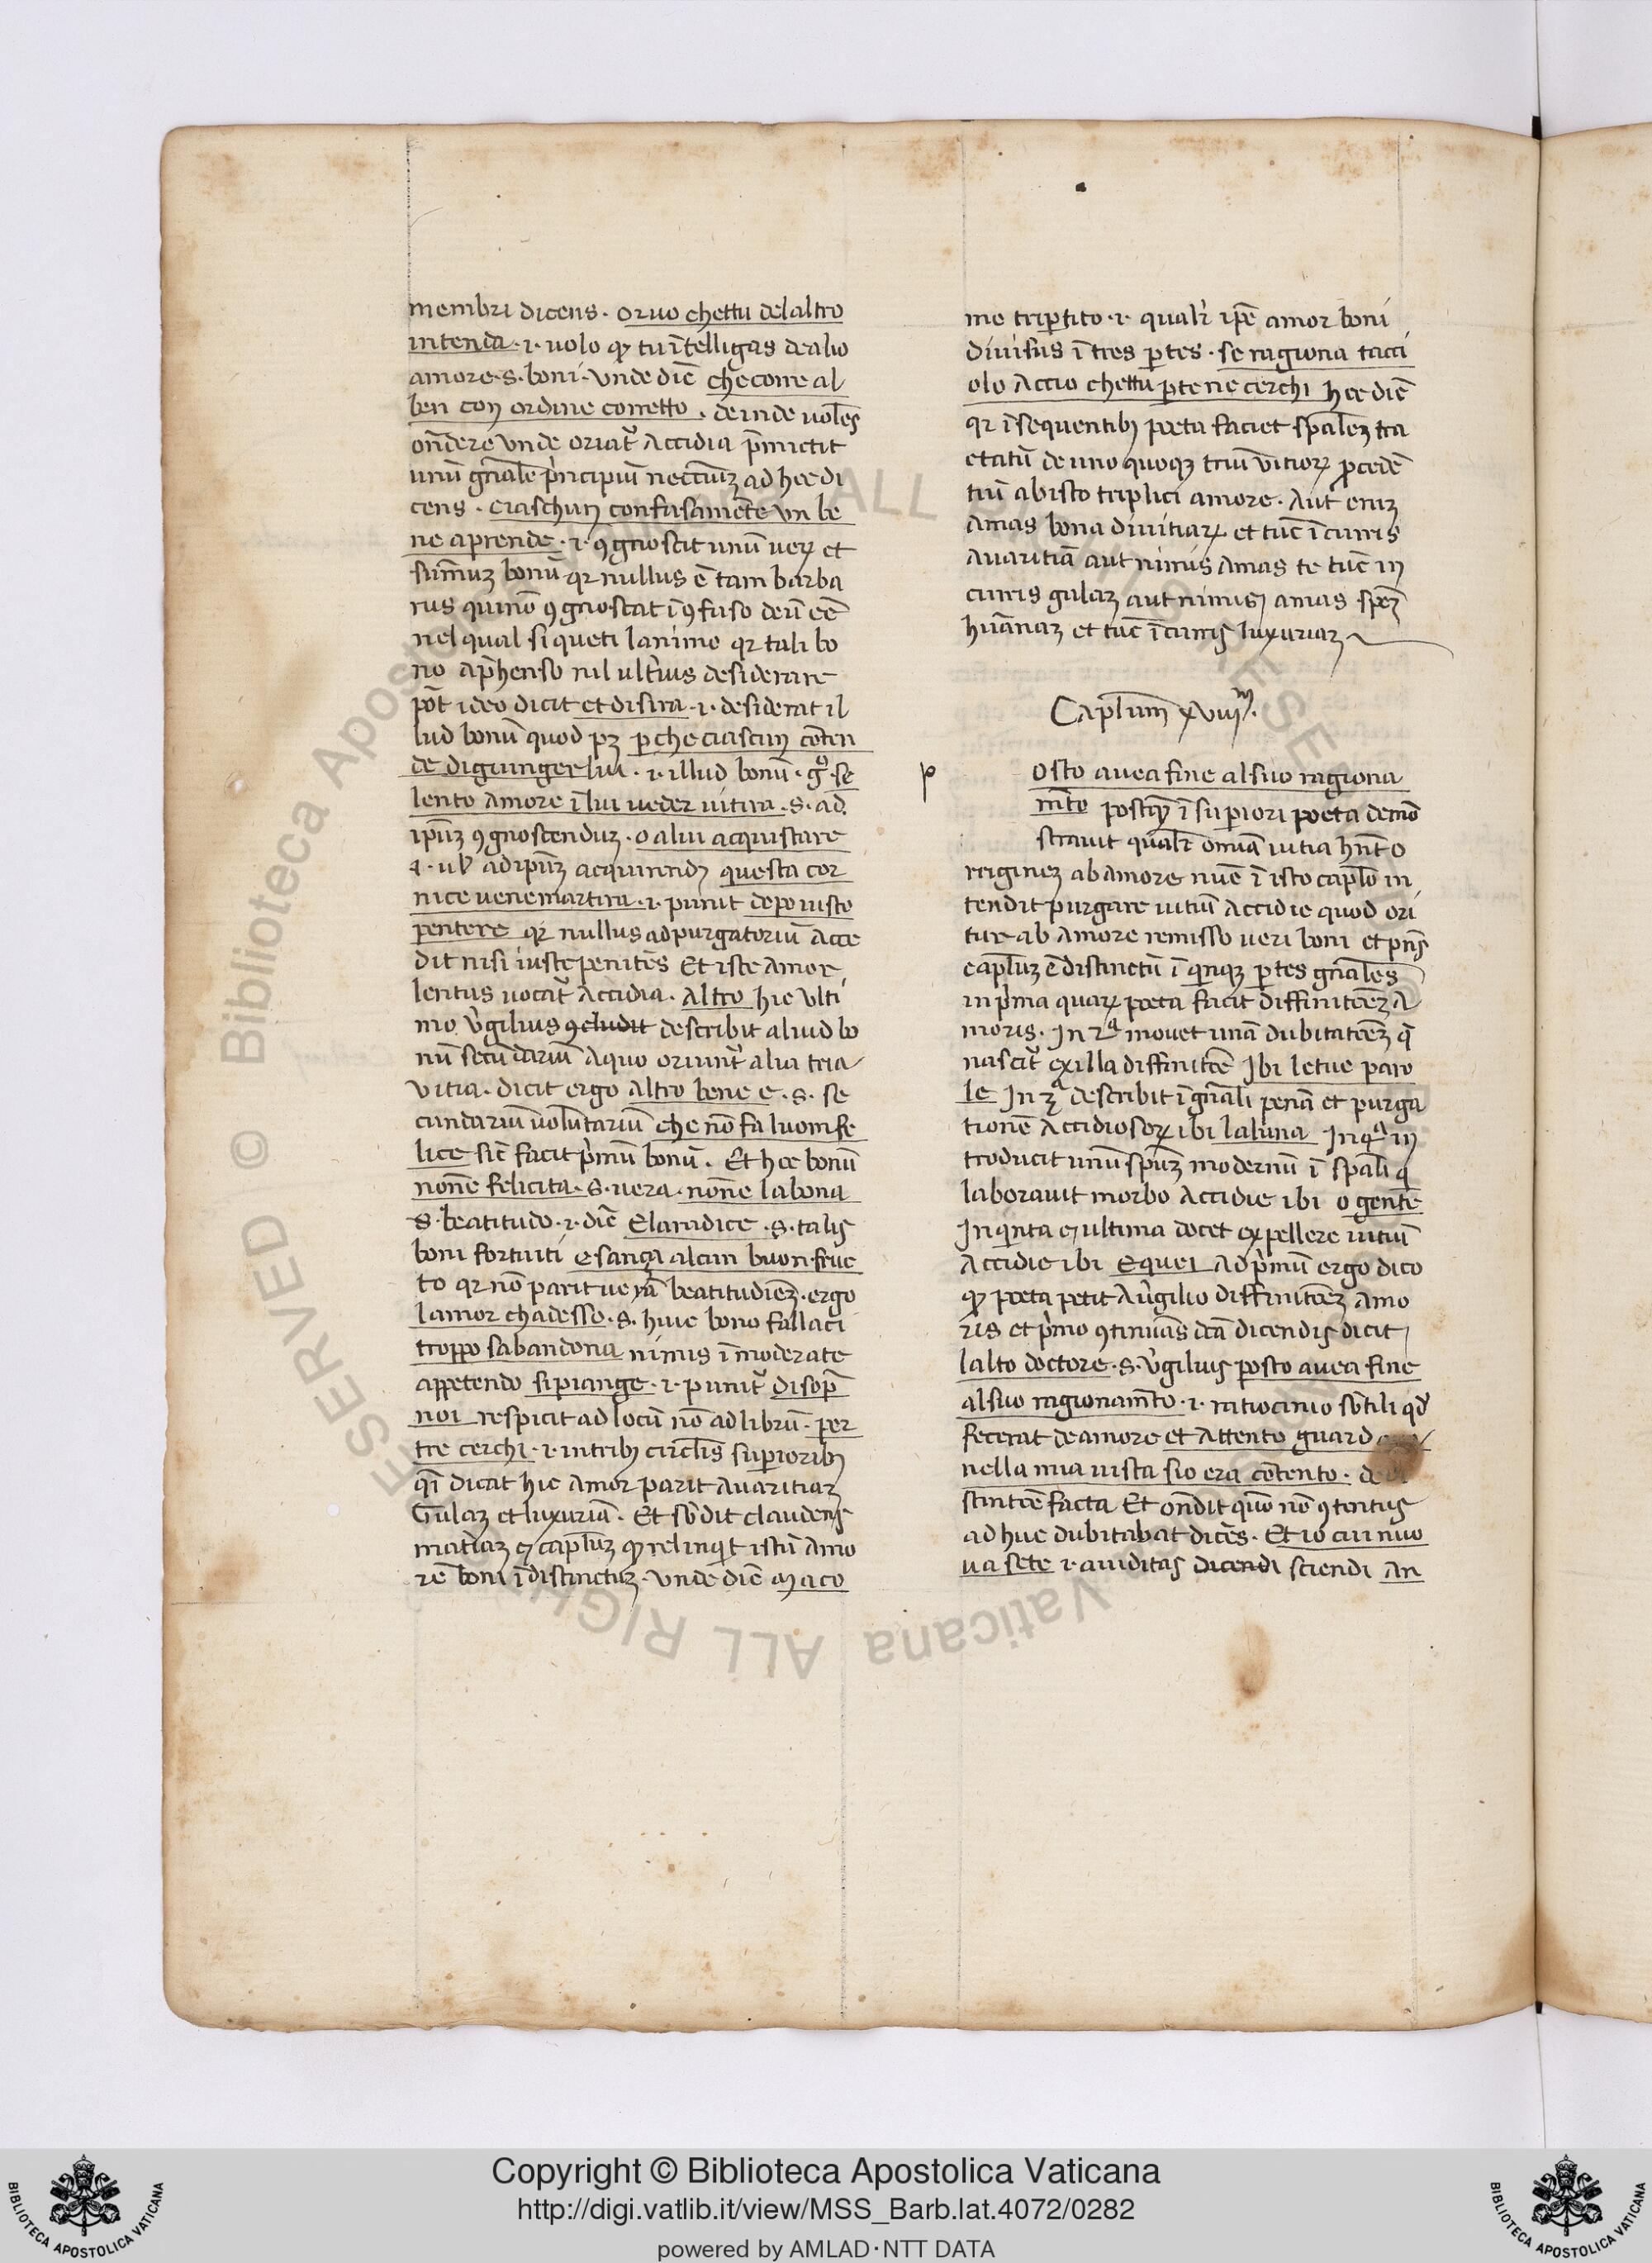 membri dicens · oruo chettu delaltro
intenda · i · uolo qp tu ītelligas dealio
amore · s · boni · vnde diē checorre al
ben con ordine corretto · deinde uolēs
onđere vnde oriat̃ Accidia p̄mictit
unū gn̄ale prīncipiū neccīuz ad hec di
cens · ciaschun confusamēte vn be
ne aprende · i · ꝯgnoscit unū ueꝝ et
sūmuz bonū qr nullus ē tam barba
rus qui nō ꝯgnoscat ī ꝯfuso deū eē
nel qual si queti lanimo qr tali bo
no apͬhenso nil ult̓ius desiderare
pōt ideo dicit et disira · i · desiderat il
lud bonū quod pꝫ perche ciascun cōten
de digiungerlui · i · illud bonū · gͦ · se
lento amore ī lui ueder uitira · s · ad
ipūꝫ ꝯgnoscenduꝫ · o alui acquistare
i · ul̓ ad ipūꝫ acquirendꝫ questa cor
nice uene martira · i · punit depo iusto
pentere qr nullus ad purgatoriū acce
dit nisi iuste penitēs Et iste amor
lentus uocat̃ Accidia · Altro hic ulti
mo v̓gilius ꝯcludit describit aliud bo
nū secūdariū aquo oriunt̃ alia tria
vitia · dicit ergo Altro bene e · s · se
cundariū uolūtariū che nō fa luom fe
lice sic̄ facit p̓mū bonū · Et hec bonū
none felicita · s · uera · none labona
s · beatitudo · i · diē Elaradice · s · talis
boni fortuiti esança alcun buon fruc
to qr nō parit uerā beatitudiēꝫ · ergo
lamor chadesso · s · huic bono fallaci
troppo sabandona nimis īmoderate
appetendo si piange · i · punit̃ disop̄
noi respicit ad locū nō ad librū · per
tre cerchi · i · in tribꝫ circl̄is superioribꝫ
qī dicat hic amor parit auaritiaꝫ
Gulaꝫ et luxuriā · Et sb̄dit claudens
mat̓iaꝫ ⁊ capl̄uꝫ qp relinqͥt istū amo
rē boni īdistinctuꝫ · vnde diē Ma co
me tripertito · i · qualr̄ ipē amor boni
diuisus ī tres ꝑtes · se ragiona tacci
olo Accio chettu perte ne cerchi hec diē
qr ī sequentibꝫ poeta faciet spāleꝫ tra
ctatū de uno quoqꝫ triū vitioꝝ ꝓcedē
tiū ab isto triplici amore · Aut eniꝫ
Amas bona diuitiaꝝ et tūc īcurris
Auaritiā aut nimis amas te tūc in
curris gulaꝫ aut nimis amas speꝫ
hūanaꝫ et tūc īcurris luxuriaꝫ
Capl̄um xviijm ·
p osto auea fine al suo ragiona
mēto postqꝫ ī superiori poeta demō
strauit qualr̄ omīa uitia hn̄t o
riginez ab amore nūc ī isto capl̄o in
tendit purgare uitiū Accidie quod ori
tur ab amore remisso ueri boni et pn̄s
capl̄uꝫ ē distinctū ī qͥnqꝫ ꝑtes gn̄ales
in pͥma quaꝝ poeta facit diffinitōeꝫ a
moris · In 2ª mouet unā dubitatōeꝫ q̄
nascit̃ ex illa diffinitōe Ibi le tue paro
le In 3ª describit ī gn̄ali penā et purga
tionē Accidiosoꝝ ibi la luna In qͣ in
troducit unū spūꝫ modernū ī spāli qͥ
laborauit morbo Accidie ibi o gente
In qͥnta ⁊ ultima docet expellere uitiū
Accidie ibi Equei Ad pͥmū ergo dico
qp poeta petit a v̓gilio diffinitōeꝫ amo
ris et pͥmo ꝯtinuās dc̄a dicendis dicit
lalto doctore · s · v̓gilius posto auea fine
al suo ragionamēto · i · ratiocinio sb̄tili qd̄
fecerat de amore et Attento guard
nella mia uista sio era cōtento · de
stintōe facta Et on̄dit quō nō ꝯtentus
ad huc dubitabat dicēs · Et io cui nuo
ua sete · i · auiditas dicendi sciendi an
Copyright © Biblioteca Apostolica Vaticana
http://digi.vatlib.it/view/MSS_Barb.lat.4072/0282
powered by AMLAD·NTT DATA